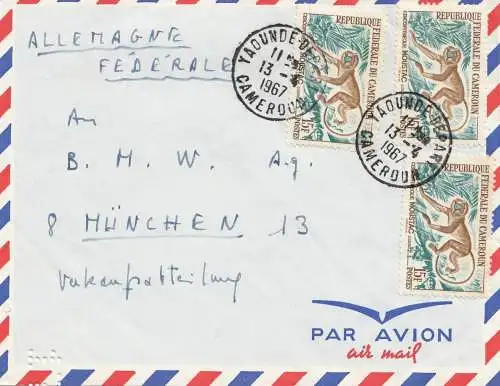 ALLEMAGNE
FÉDÉRALE
An
B. M. W. A.g.
8 MÜNCHEN 13
Verkaufsabteilung
YAOUNDE-DEPART
11
13 -4
1967
CAMEROUN
YAOUNDE-DEPART
13 -4
1967
CAMEROUN
REPUBLIQUE FEDERALE DU CAMEROUN
15F
POSTES
REPUBLIQUE FEDERALE DU CAMEROUN
CERCOPITHEQUE MOUSTAC
REPUBLIQUE FEDERALE DU CAMEROUN
CERCOPITHEQUE MOUSTAC
15F
POSTES
PAR AVION
air mail